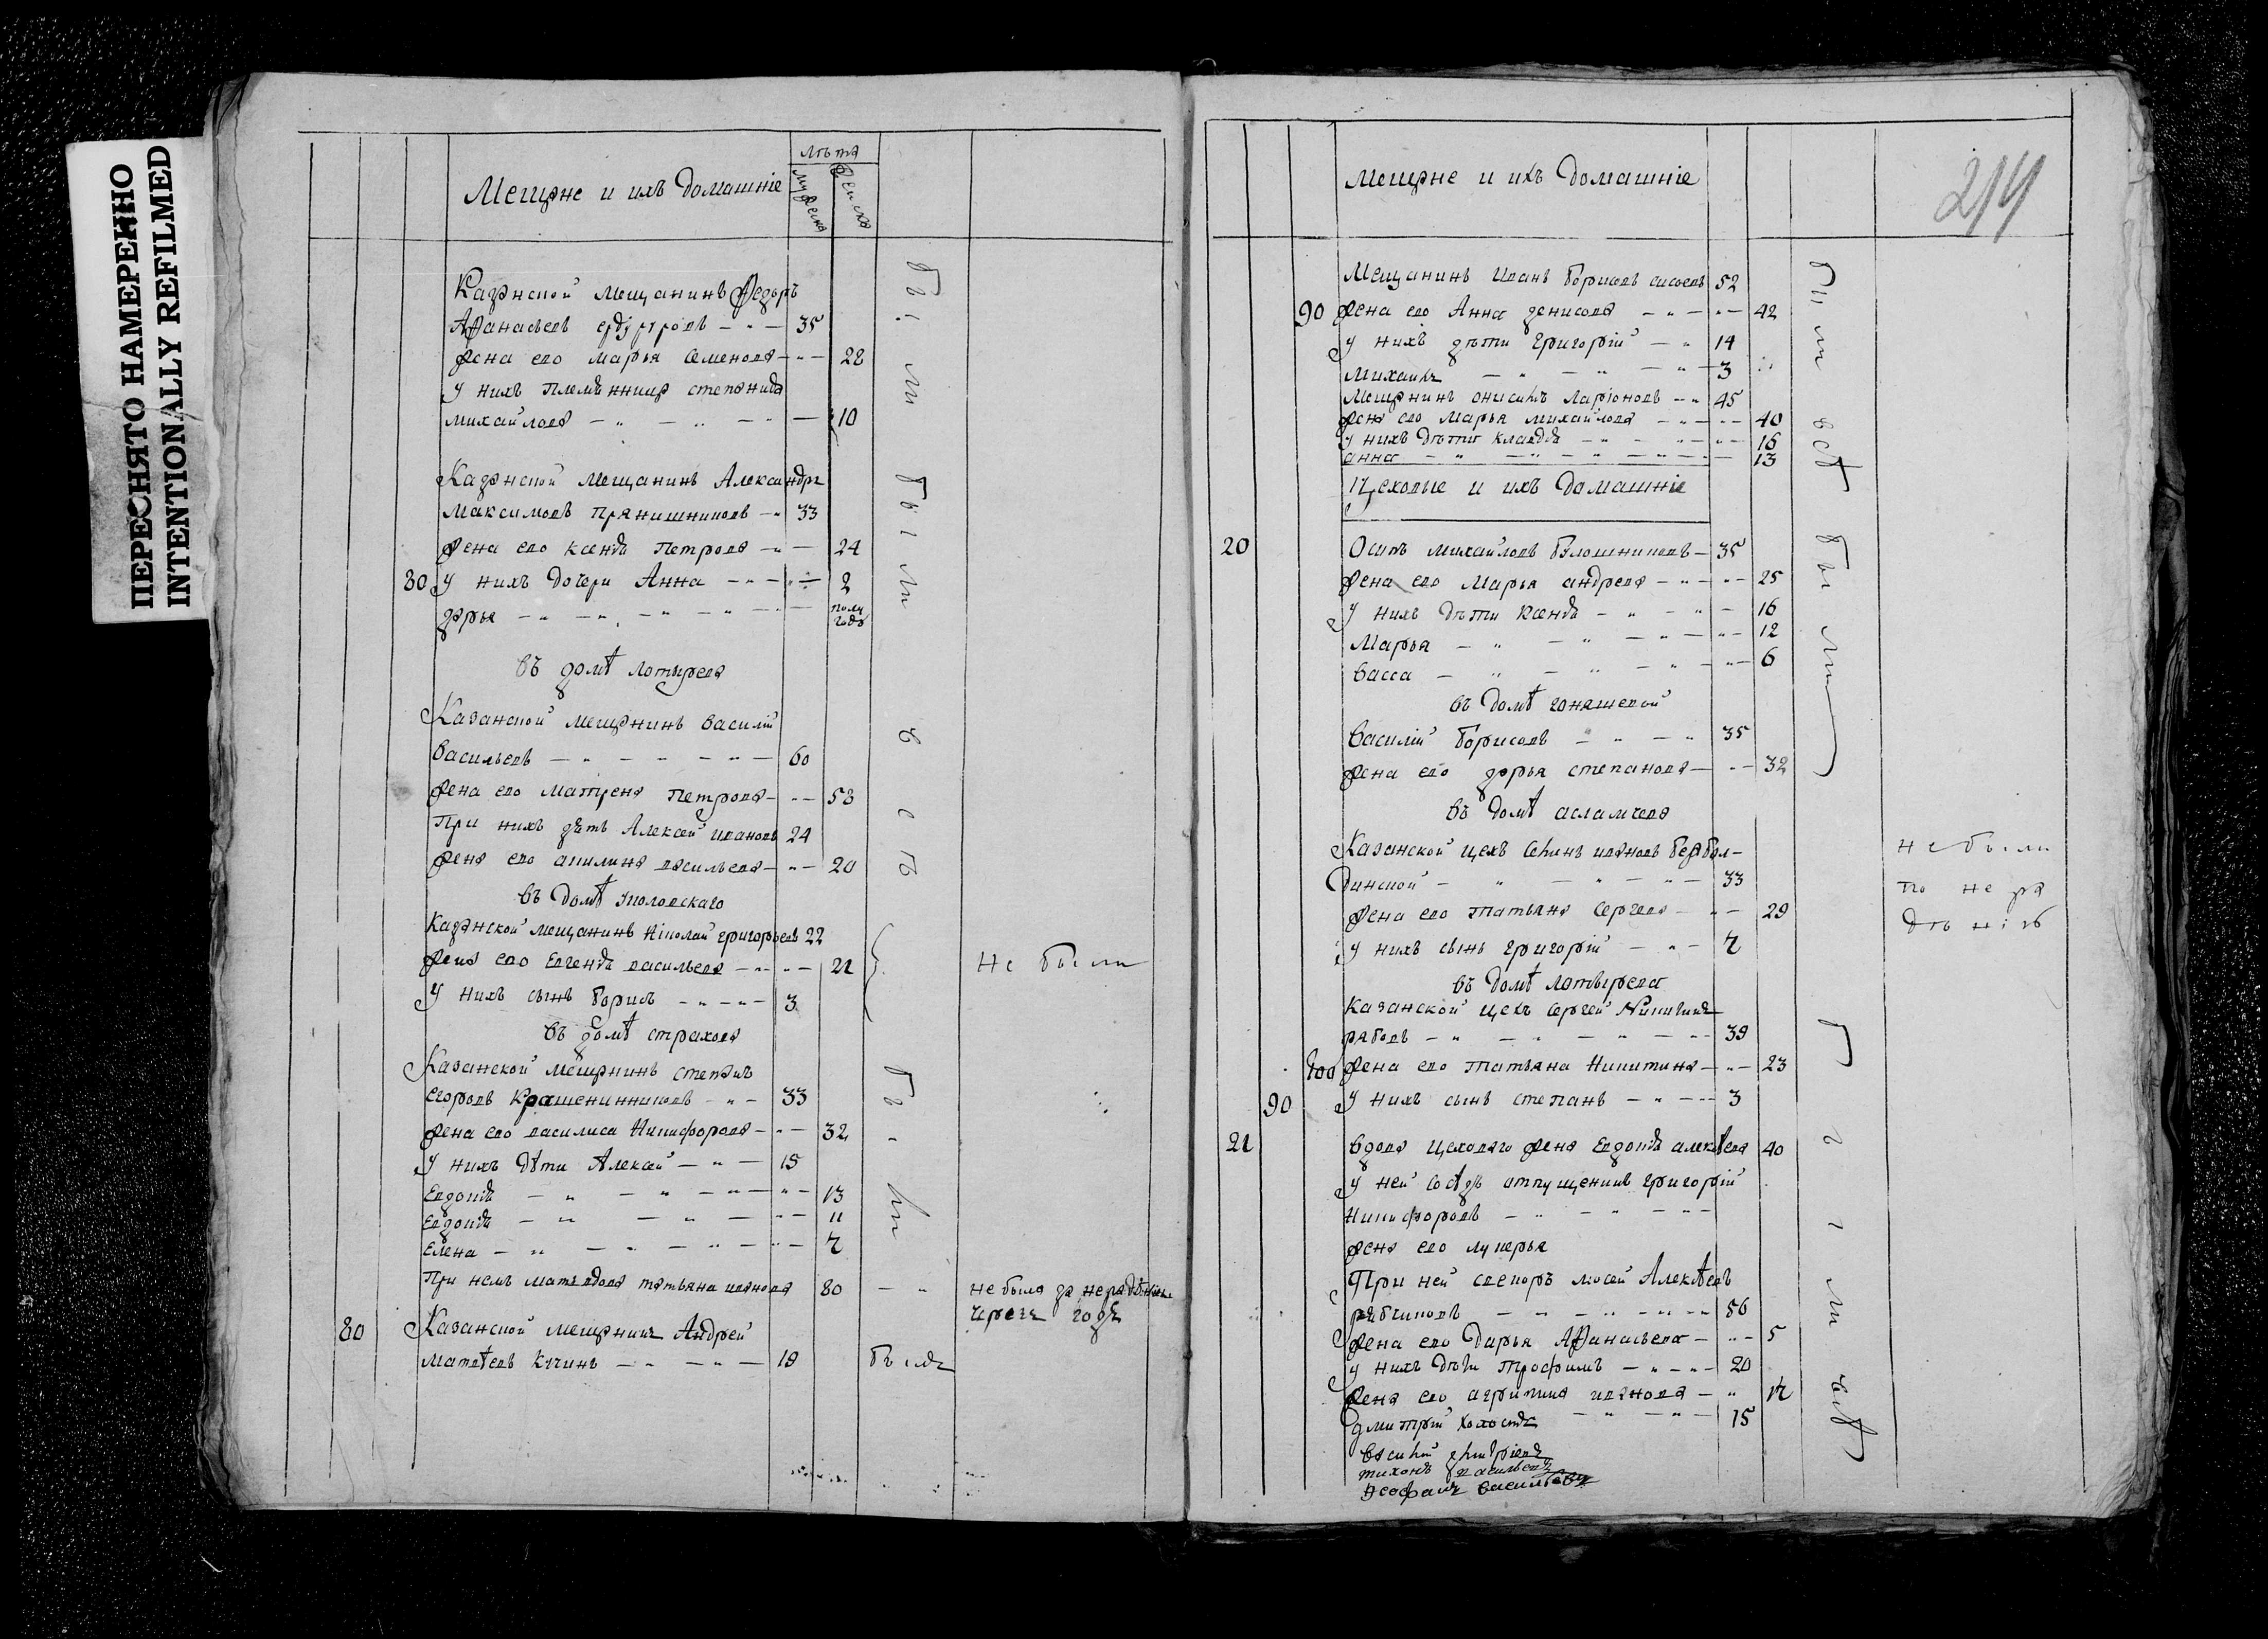 ПЕРЕСНЯТО НАМЕРЕННО
INTENTIONALLY REFILMED
лѣта
Мещане и ихъ домашніе
мужеска
женска
Казанской мещанинъ Федоръ
Афанасьевъ 35
жена его марья Семенова 28
у нихъ племѣнница степанида
михайлова 10
Казанской мещанинъ Александръ
максимовъ прянишниковъ 33
жена его ксенья Петрова 24
80 у нихъ дочери Анна 2
дарья полу года
были
въ домѣ лотырева
Казанской мещанинъ василій
васильевъ 60
жена его матрена петрова 53
При нихъ зять Алексей ивановъ 24
жена его акилина васильева 20
въ домѣ
Казанской мещанинъ Николай григорьевъ 22
жена его Евгенья васильева 21
не были
у нихъ сынъ борисъ 3
въ домѣ страхова
Казанской мещанинъ степанъ
егоровъ Крашенинниковъ 33
жена его василиса Никифорова 32
у нихъ дѣти Алексей 15
Евдокия 13
Евдокия 11
Елена 7
При немъ мать вдова татьяна иванова 80 не была за нерадѣнием
80 Казанской мещанинъ Андрей
матвѣевъ 19 былъ
Мещане и ихъ домашніе
214
Мещанинъ иванъ борисовъ сысоевъ 52
90 жена его Анна денисова 42
у нихъ дѣти григорій 14
михаилъ 3
Мещанинъ онисимъ ларіоновъ 45
жена его марья михайлова 40
у нихъ дѣти клавдия 16
анна 13
Цеховые и ихъ домашніе
20 Осипъ михайловъ 35
жена его Марья андрева 25
у нихъ дѣти ксенья 16
марья 12
васса 6
были
въ домѣ юняшевой
василій борисовъ 35
жена его дарья степанова 32
въ домѣ асламчева
Казанской цехъ ивановъ
33
не были
по нера
дѣнію
жена его татьяна сергева 29
у нихъ сынъ григорій 7
въ домѣ лотырева
Казанской цехъ сергей Никитинъ
рябовъ 39
100 жена его татьяна Никитина 23
90 у нихъ сынъ степанъ 3
21 вдова цеховаго жена Евдокия алексѣева 40
у ней сосѣдъ отпущеникъ григорій
Никифоровъ
жена его лукерья
При ней свекоръ мосей Алексѣевъ
рябчиковъ 56
жена его Дарья Афанасьева 5
у нихъ дѣти трофимъ 20
жена его агрипина иванова 17
дмитрій холостъ 15
тихонъ васильевъ
васильевъ